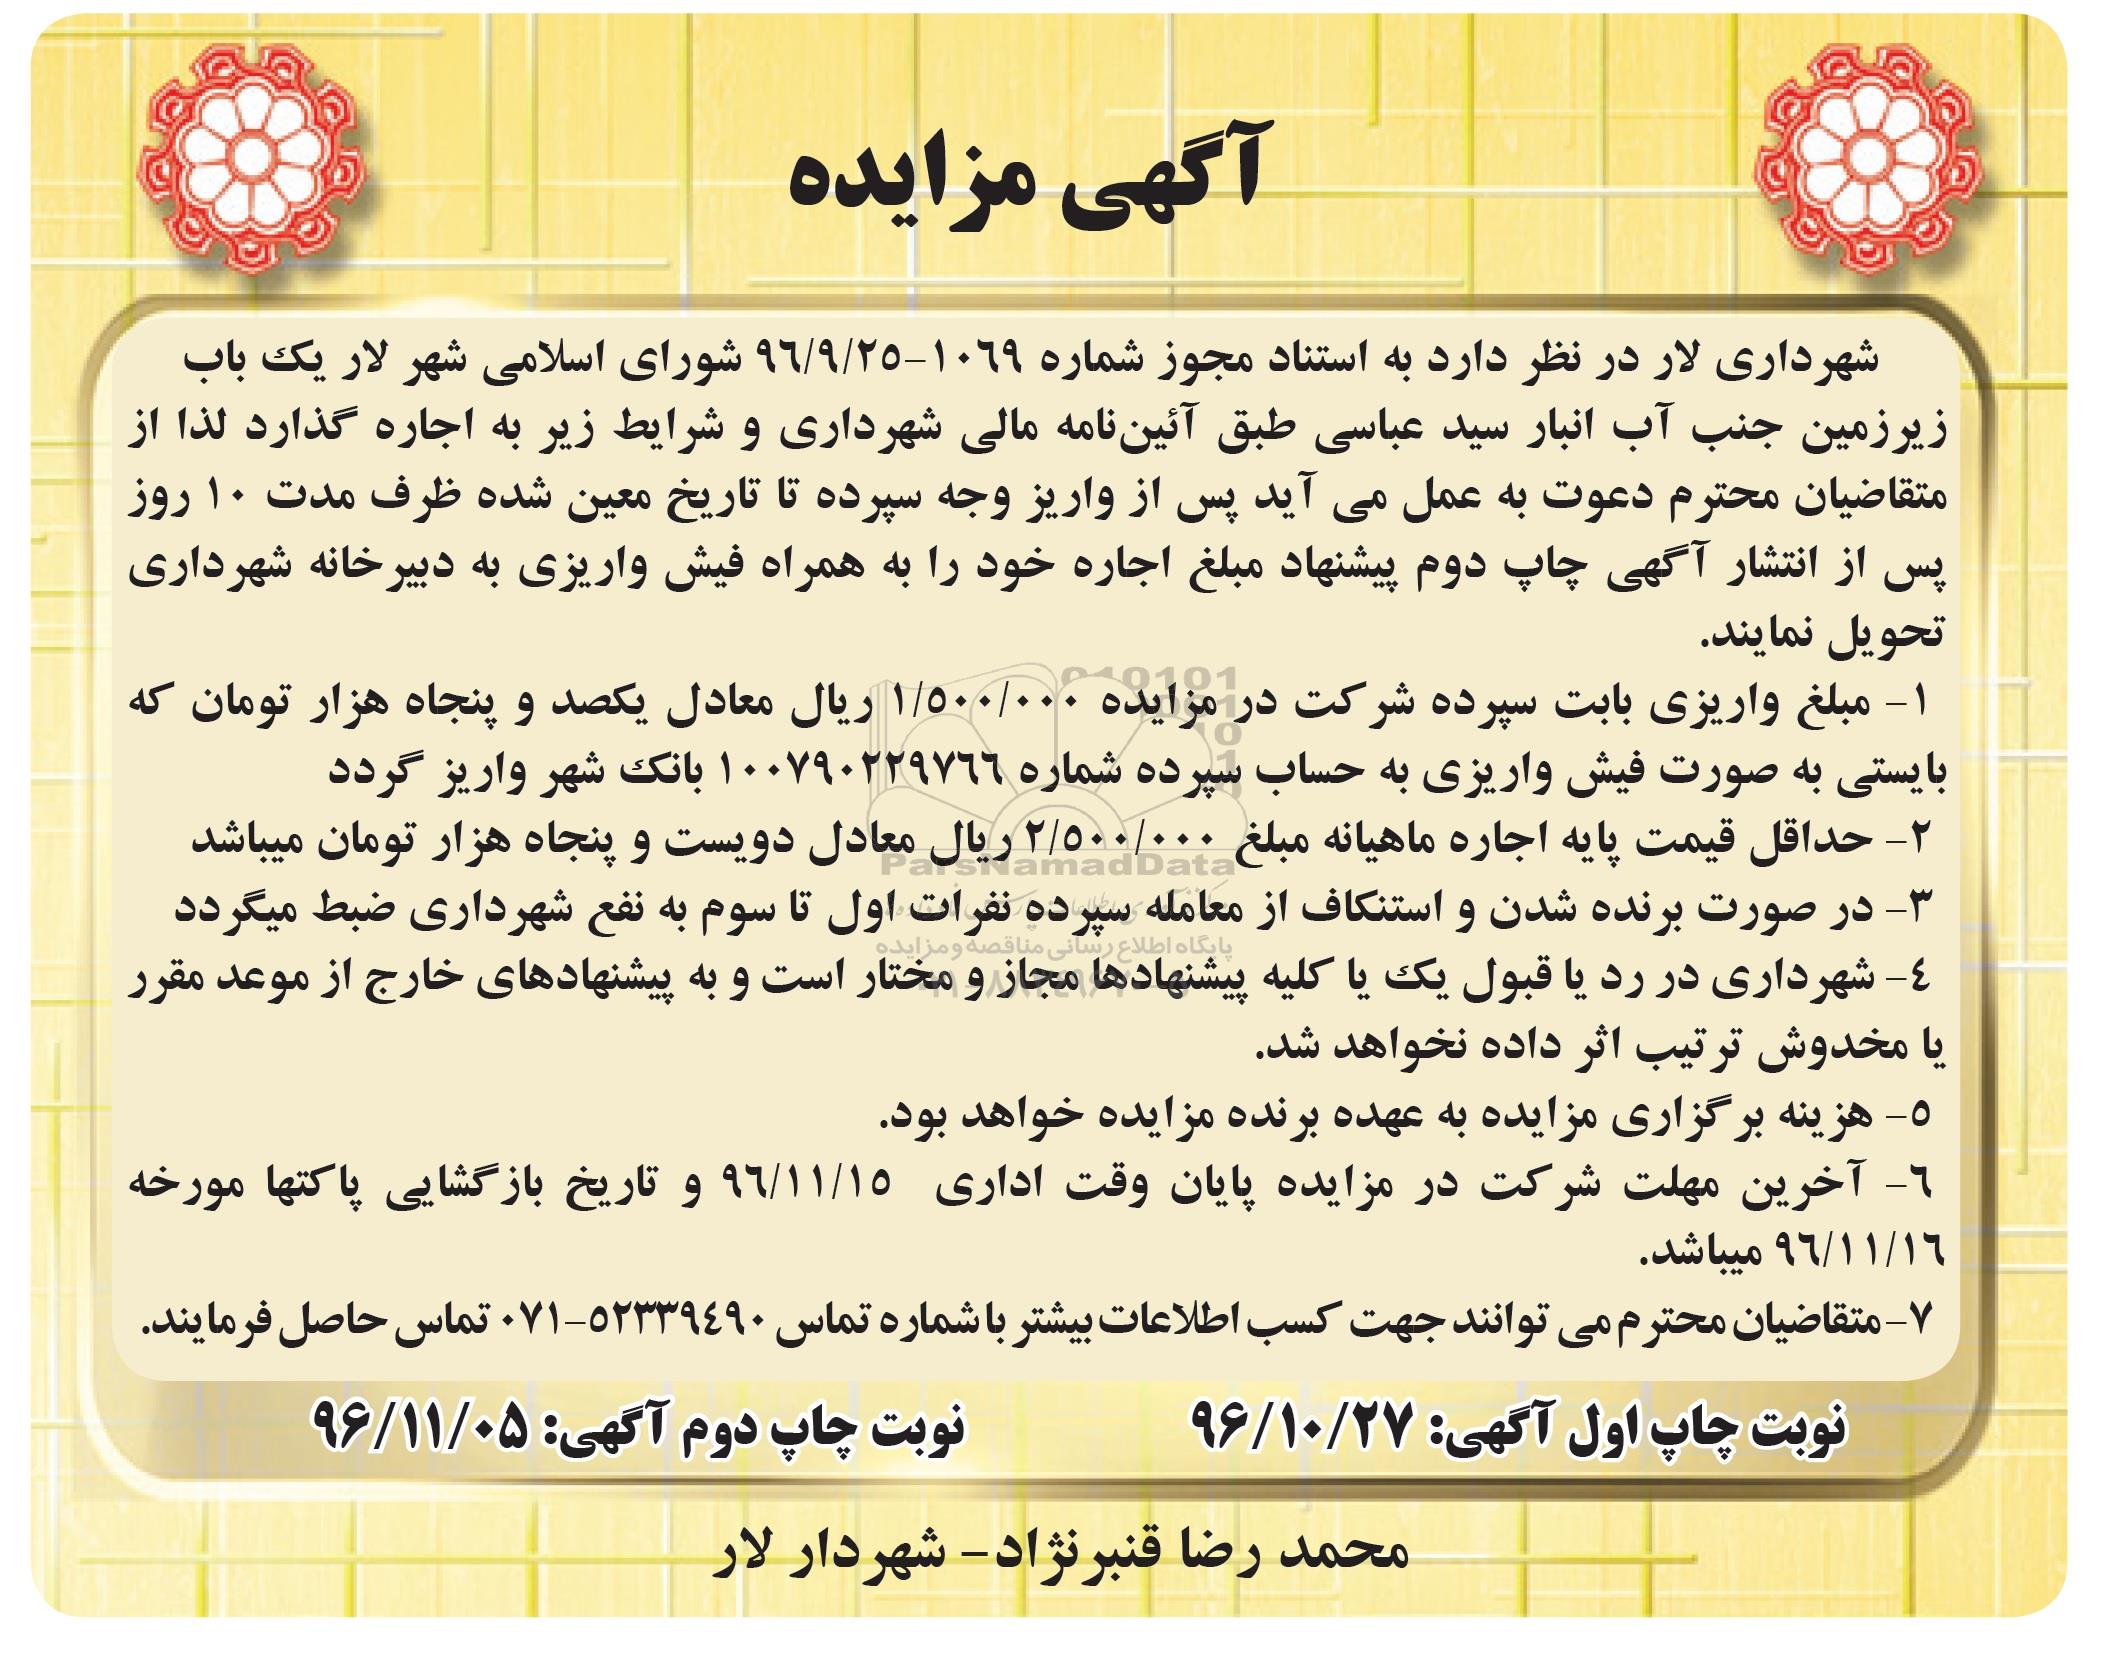 آگهی مزایده
شهرداری لار در نظر دارد به استناد مجوز شماره ۱۰۶۹-۹۶/۹/۲۵ شورای اسلامی شهر لار یک باب
زیرزمین جنب آب انبار سید عباسی طبق آئین‌نامه مالی شهرداری و شرایط زیر به اجاره گذارد لذا از
متقاضیان محترم دعوت به عمل می آید پس از واریز وجه سپرده تا تاریخ معین شده ظرف مدت ۱۰ روز
پس از انتشار آگهی چاپ دوم پیشنهاد مبلغ اجاره خود را به همراه فیش واریزی به دبیرخانه شهرداری
تحویل نمایند.
۱- مبلغ واریزی بابت سپرده شرکت در مزایده ۱/۵۰۰/۰۰۰ ریال معادل یکصد و پنجاه هزار تومان که
بایستی به صورت فیش واریزی به حساب سپرده شماره ۱۰۰۷۹۰۲۲۹۷۶۶ بانک شهر واریز گردد
۲- حداقل قیمت پایه اجاره ماهیانه مبلغ ۲/۵۰۰/۰۰۰ ریال معادل دویست و پنجاه هزار تومان میباشد
ParsNamadData
۳- در صورت برنده شدن و استنکاف از معامله سپرده نفرات اول تا سوم به نفع شهرداری ضبط میگردد
پایگاه اطلاع رسانی مناقصه و مزایده
۴- شهرداری در رد یا قبول یک یا کلیه پیشنهادها مجاز و مختار است و به پیشنهادهای خارج از موعد مقرر
یا مخدوش ترتیب اثر داده نخواهد شد.
۵- هزینه برگزاری مزایده به عهده برنده مزایده خواهد بود.
۶- آخرین مهلت شرکت در مزایده پایان وقت اداری ۹۶/۱۱/۱۵ و تاریخ بازگشایی پاکتها مورخه
۹۶/۱۱/۱۶ میباشد.
۷- متقاضیان محترم می توانند جهت کسب اطلاعات بیشتر با شماره تماس ۵۲۳۳۹۴۹۰-۰۷۱ تماس حاصل فرمایند.
نوبت چاپ اول آگهی: ۹۶/۱۰/۲۷ نوبت چاپ دوم آگهی: ۹۶/۱۱/۰۵
محمد رضا قنبرنژاد- شهردار لار